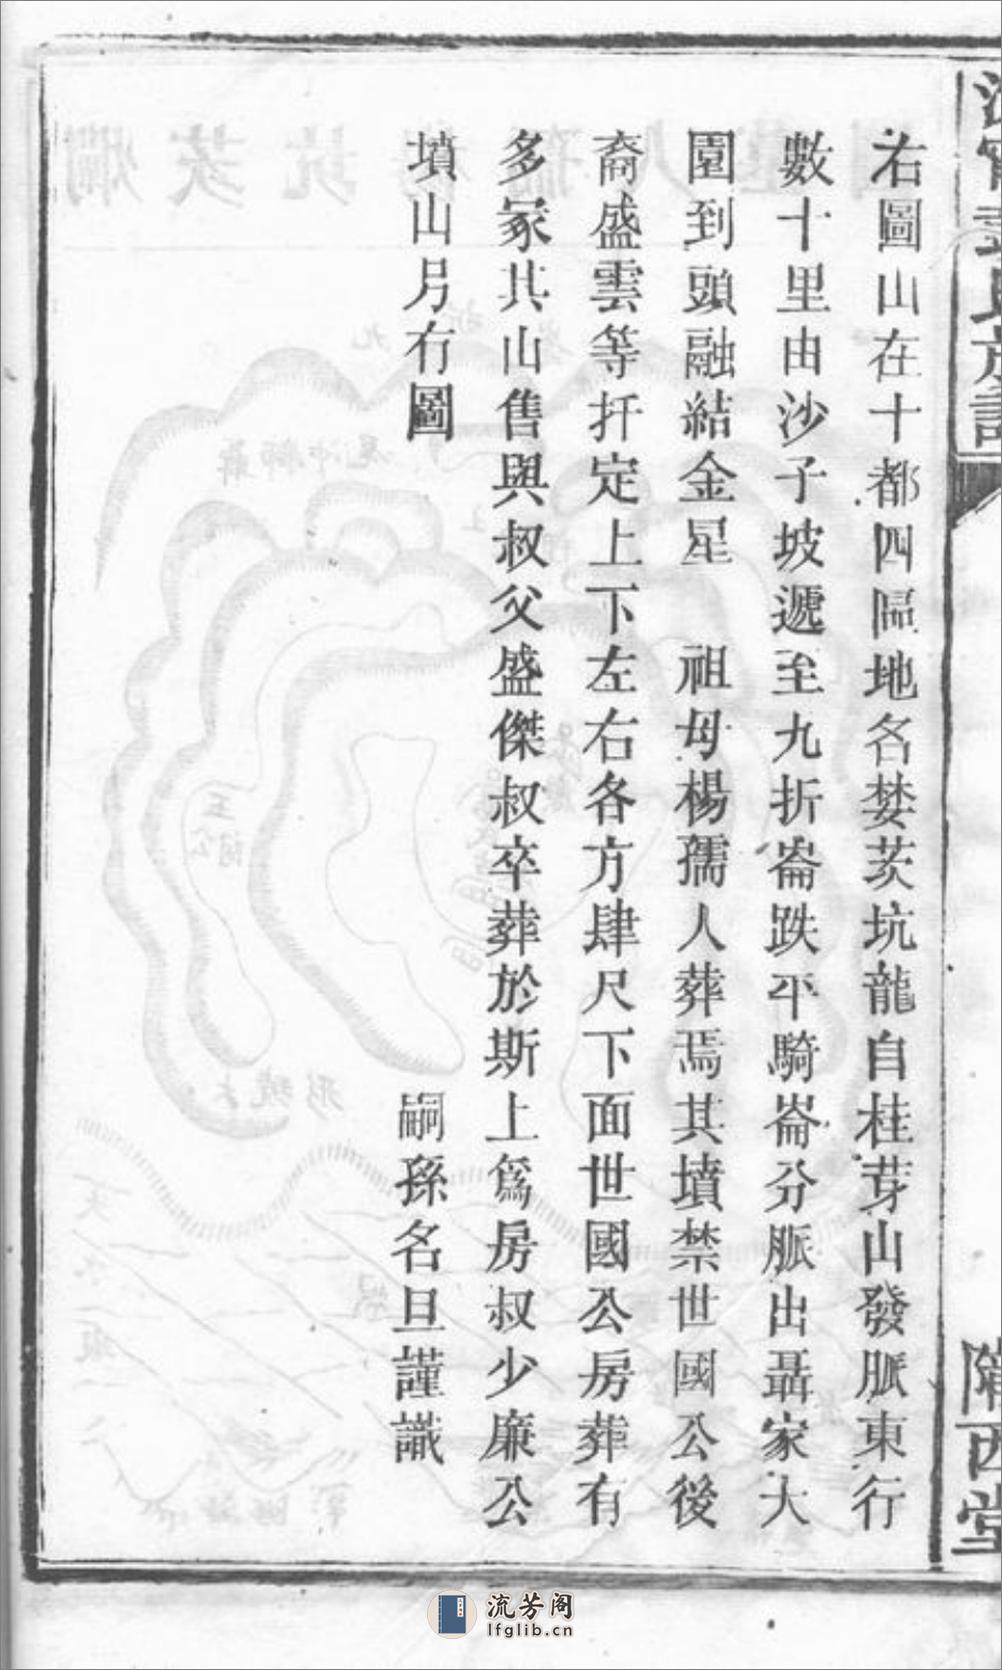 右圖山在十都四區地名婪茨坑龍自桂芽山發脈東行
數十里由沙子坡遞至九折崙跌平騎崙分脈出聶家大
園到頭融結金星 祖母楊孺人葬焉其墳禁世國公後
裔盛雲等扦定上下左右各方肆尺下面世國公房葬有
多冢其山售與叔父盛傑叔卒葬於斯上爲房叔少廉公
墳山另有圖 嗣孫名旦謹識
隴西堂
流芳阁
lfglib.cn